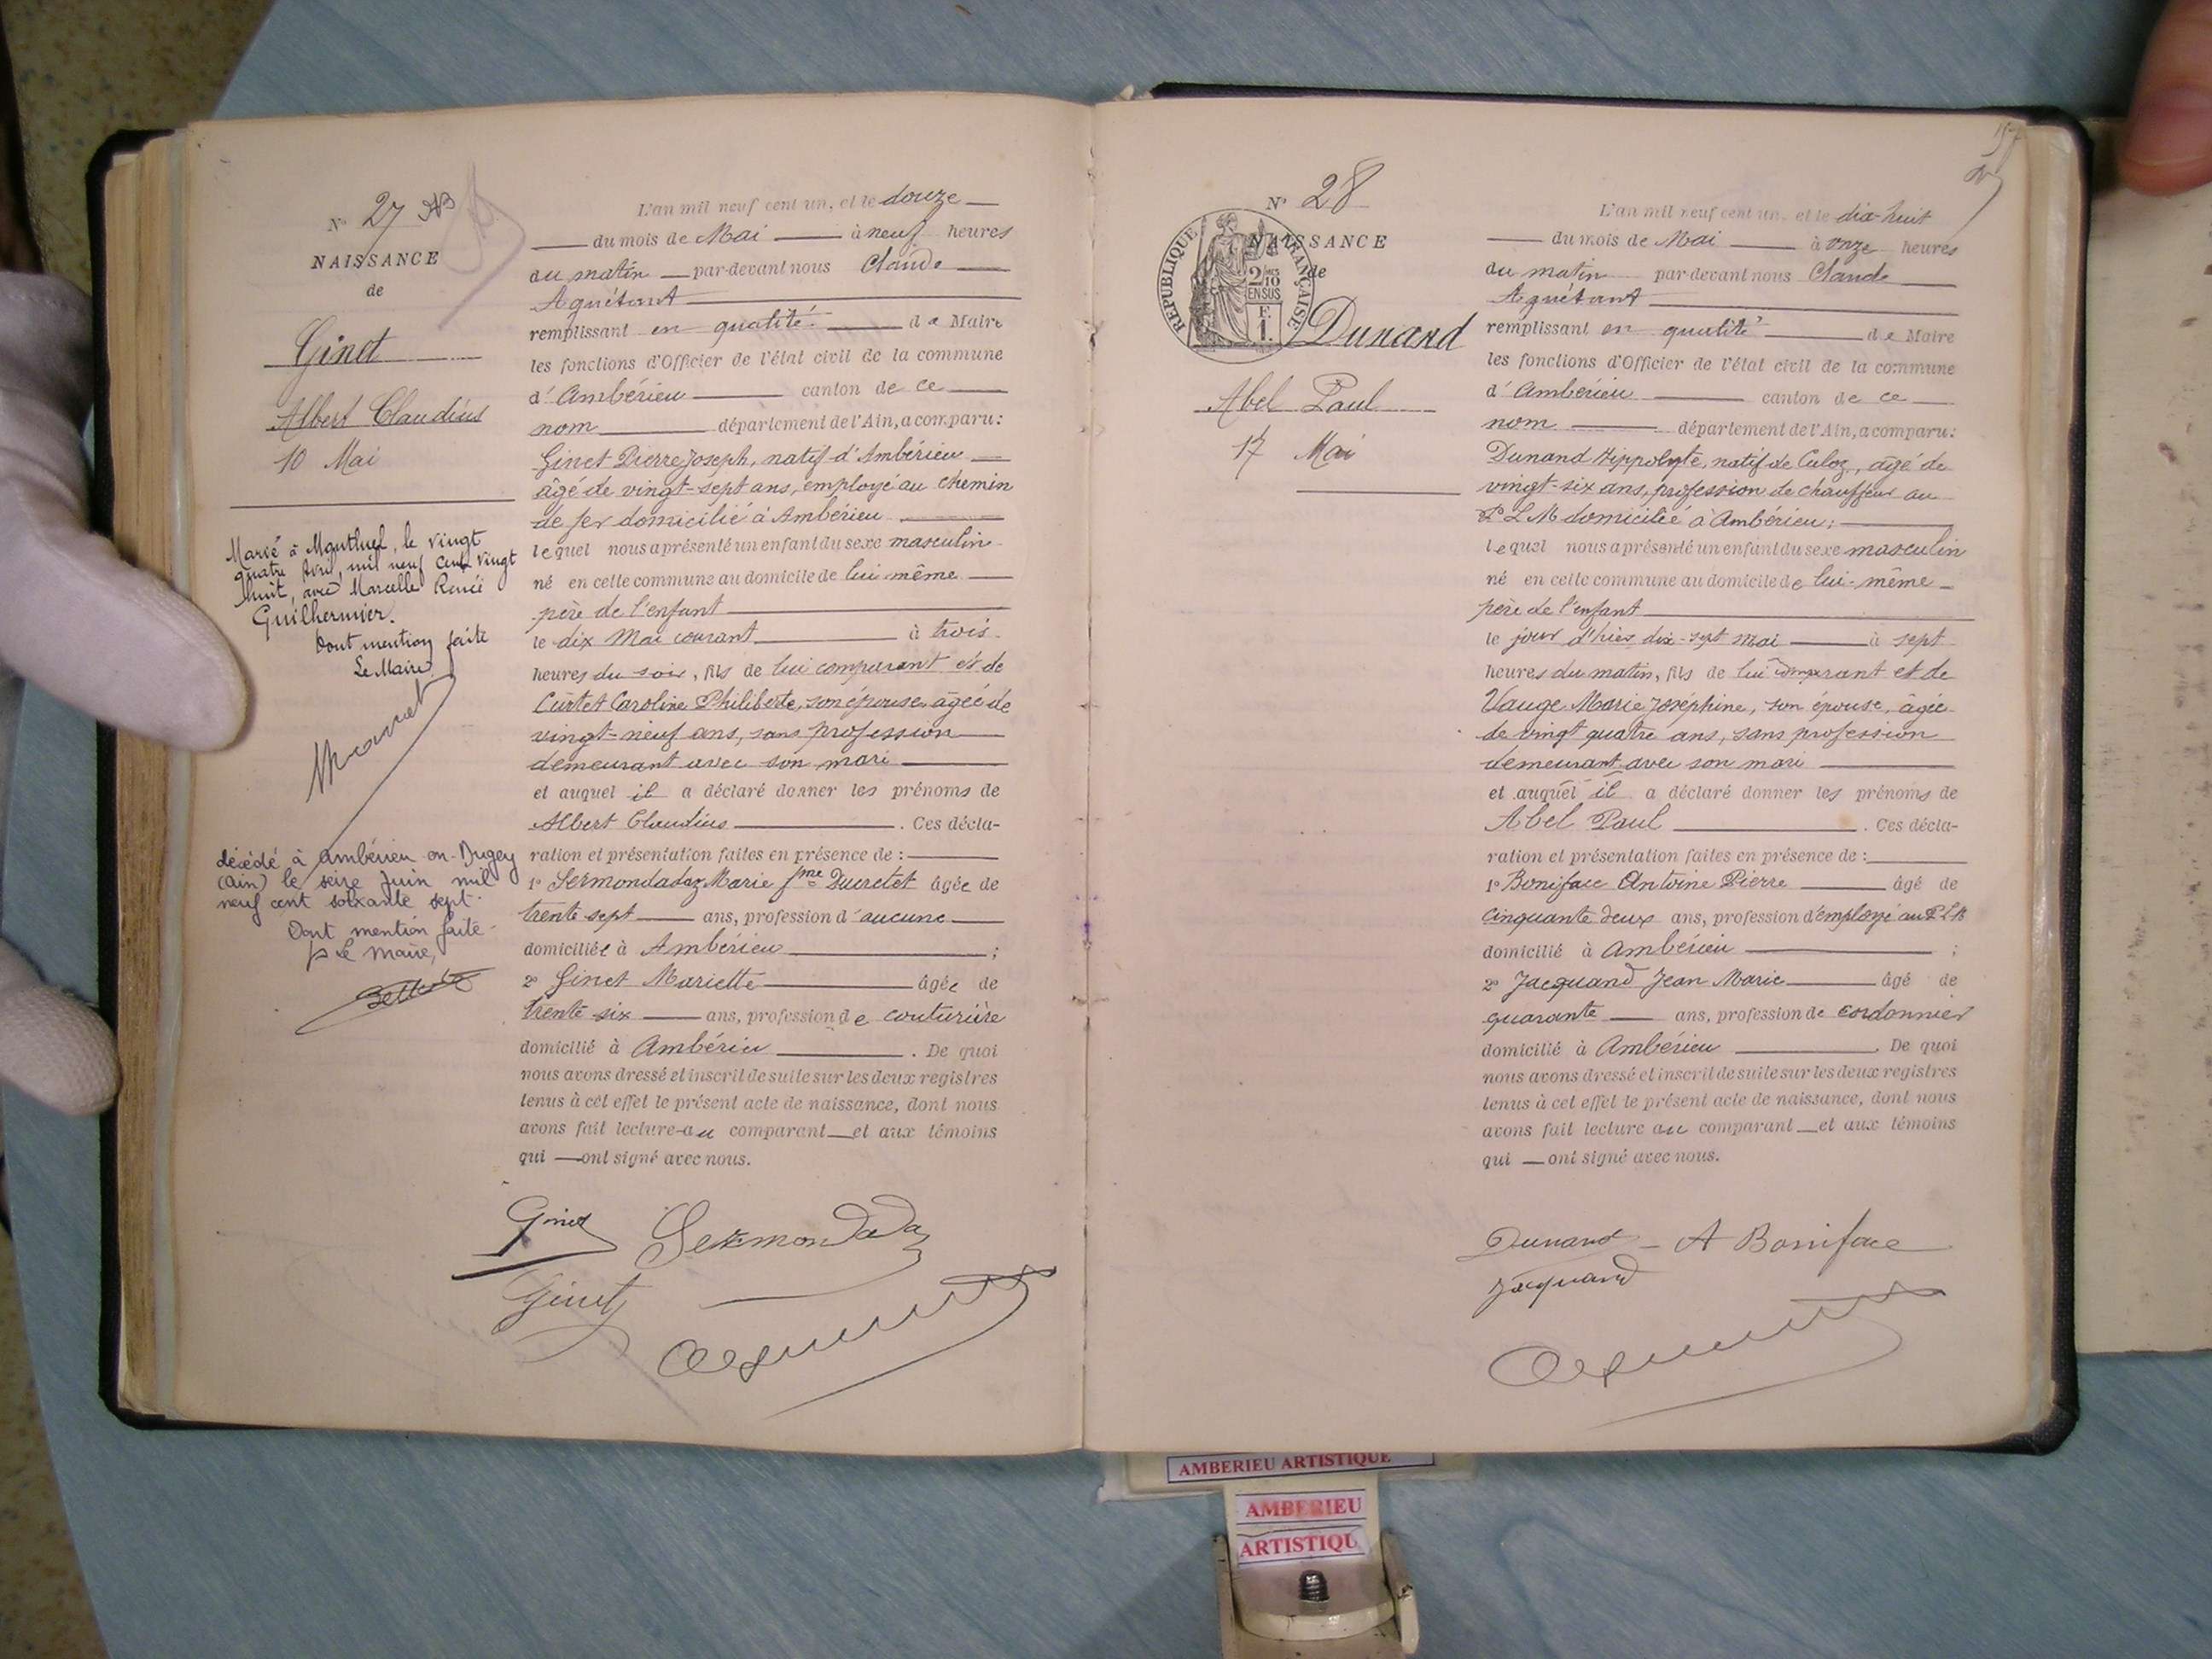 N° 27
NAISSANCE
de
Ginet
Albert Claudius
10 Mai
Marié à Montluel, le vingt
quatre Avril, mil neuf cent vingt
huit, avec Marcelle Renée
Guilhermier.
Dont mention faite
Le Maire
décédé à Ambérieu-en-Bugey
(Ain) le seize Juin mil
neuf cent soixante sept.
Dont mention faite.
Le Maire,
L'an mil neuf cent un, et le douze
du mois de Mai à neuf heures
du matin par-devant nous Claude
Aguétant
remplissant en qualité de Maire
les fonctions d'Officier de l'état civil de la commune
d'Ambérieu canton de ce
nom département de l'Ain, a comparu:
Ginet Pierre Joseph, natif d'Ambérieu
âgé de vingt-sept ans, employé au chemin
de fer domicilié à Ambérieu
lequel nous a présenté un enfant du sexe masculin
né en cette commune au domicile de lui même
père de l'enfant
le dix Mai courant à trois
heures du soir, fils de lui comparant et de
Curtet Caroline Philiberte, son épouse âgée de
vingt-neuf ans, sans profession
demeurant avec son mari
et auquel il a déclaré donner les prénoms de
Albert Claudius. Ces décla-
ration et présentation faites en présence de :
1° Sermondadaz Marie fme Ducretet âgée de
trente sept ans, profession d'aucune
domiciliée à Ambérieu ;
2° Ginet Mariette âgée de
trente six ans, profession de couturière
domicilié à Ambérieu. De quoi
nous avons dressé et inscrit de suite sur les deux registres
tenus à cet effet le présent acte de naissance, dont nous
avons fait lecture au comparant et aux témoins
qui ont signé avec nous.
Ginet Sermondadaz
Ginet
N° 28
NAISSANCE
de
RÉPUBLIQUE FRANÇAISE
2/10
EN SUS
F.
1.
Dunand
Abel Paul
17 Mai
L'an mil neuf cent un, et le dix-huit
du mois de Mai à onze heures
du matin par-devant nous Claude
Aguétant
remplissant en qualité de Maire
les fonctions d'Officier de l'état civil de la commune
d'Ambérieu canton de ce
nom département de l'Ain, a comparu:
Dunand Hippolyte, natif de Culoz, âgé de
vingt-six ans, profession de chauffeur au
P L M domicilié à Ambérieu;
lequel nous a présenté un enfant du sexe masculin
né en cette commune au domicile de lui-même
père de l'enfant
le jour d'hier dix-sept mai à sept
heures du matin, fils de lui comparant et de
Vauge Marie Joséphine, son épouse, âgée
de vingt quatre ans, sans profession
demeurant avec son mari
et auquel il a déclaré donner les prénoms de
Abel Paul. Ces décla-
ration et présentation faites en présence de :
1° Boniface Antoine Pierre âgé de
cinquante deux ans, profession d'employé au P L M
domicilié à Ambérieu ;
2° Jacquand Jean Marie âgé de
quarante ans, profession de cordonnier
domicilié à Ambérieu. De quoi
nous avons dressé et inscrit de suite sur les deux registres
tenus à cet effet le présent acte de naissance, dont nous
avons fait lecture au comparant et aux témoins
qui ont signé avec nous.
Dunand - A Boniface
Jacquand
AMBERIEU ARTISTIQUE
AMBERIEU
ARTISTIQU